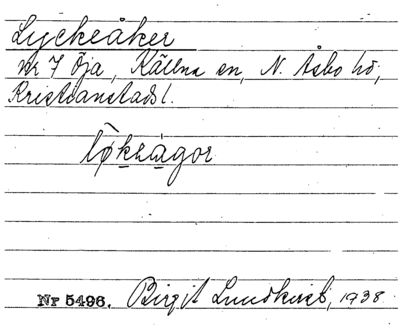 Lyckeåker
nr 7 Öja, Källna sn, N. Åsbo hd,
Kristianstads l.
Nr 5496. Birgit Lundkvist, 1938.